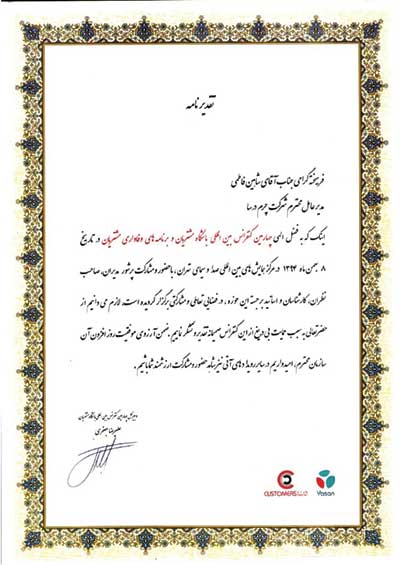 تقدیرنامه
فرهیخته گرامی جناب آقای شاهین فاطمی
مدیرعامل محترم شرکت چرم درسا
اینک که به فضل الهی چهارمین کنفرانس بین المللی باشگاه مشتریان و برنامه های وفاداری مشتریان در تاریخ
۸ بهمن ماه ۱۳۹۴ در مرکز همایش های بین المللی صدا و سیمای تهران، با حضور و مشارکت پرشور مدیران، صاحب
نظران، کارشناسان و اساتید برجسته این حوزه، در فضایی تعاملی و مشارکتی برگزار گردیده است، لازم می دانیم از
حضرتعالی به سبب حمایت بی دریغ از این کنفرانس صمیمانه تقدیر و تشکر نماییم. ضمن آرزوی موفقیت روز افزون آن
سازمان محترم، امیدواریم در سایر رویدادهای آتی نیز شاهد حضور و مشارکت ارزشمند شما باشیم.
دبیر چهارمین کنفرانس بین المللی باشگاه مشتریان
علیرضا جعفری
CUSTOMERSCLUB
Yasan